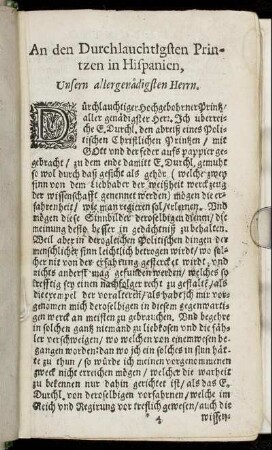 An den Durchlauchtigsten Prin-
tzen in Hispanien,
Unsern allergenädigsten Herrn.
DUrchlauchtiger Hochgebohrner Printz/
aller genädigster Herr. Ich uberrei-
che E. Durchl. den abreiß eines Poli-
tischen Christlichen Printzen / mit
GOtt und der feder aufs pappier ge-
gebracht / zu dem ende damitt E. Durchl. gemuht
so wol durch daß gesicht als gehör (welche zwey
sinn von dem Liebhaber der weißheit werckzeug
der wissenschafft genennet werden) mögen die er-
fahrenheit / wie man regieren sol / erlangen. Und
mögen diese Sinnbilder deroselbigen dienen / die
meinung desto besser in gedächtniß zu behalten.
Weil aber in dergleichen Politischen dingen der
menschlicher sinn leichtlich betrogen wirdt / wo sol-
cher nit von der erfahrung gestercket wirdt, und
nichts anderst mag gefunden werden / welches so
krefftig sey einen nachfolger recht zu gestalte / als
die exempel der voraltern / als hab ich mir vor-
genommen mich deroselbigen in diesem gegenwärti-
gen werck an meisten zu gebrauchen. Und begehre
in solchen gantz niemand zu liebkosen und die fäh-
ler verschweigen / wo welchen von einem wesen be-
gangen worden: dan wo ich ein solches in sinn hät-
te zu thun / so würde ich meinen vorgenommenen
zweck nicht erreichen mögen / welcher die warheit
zu bekennen nur dahin gerichtet ist / als das E.
Durchl. von deroselbigen vorfahrnen / welche im
Reich und Regirung vor treflich gewesen / auch die
4 wissen-